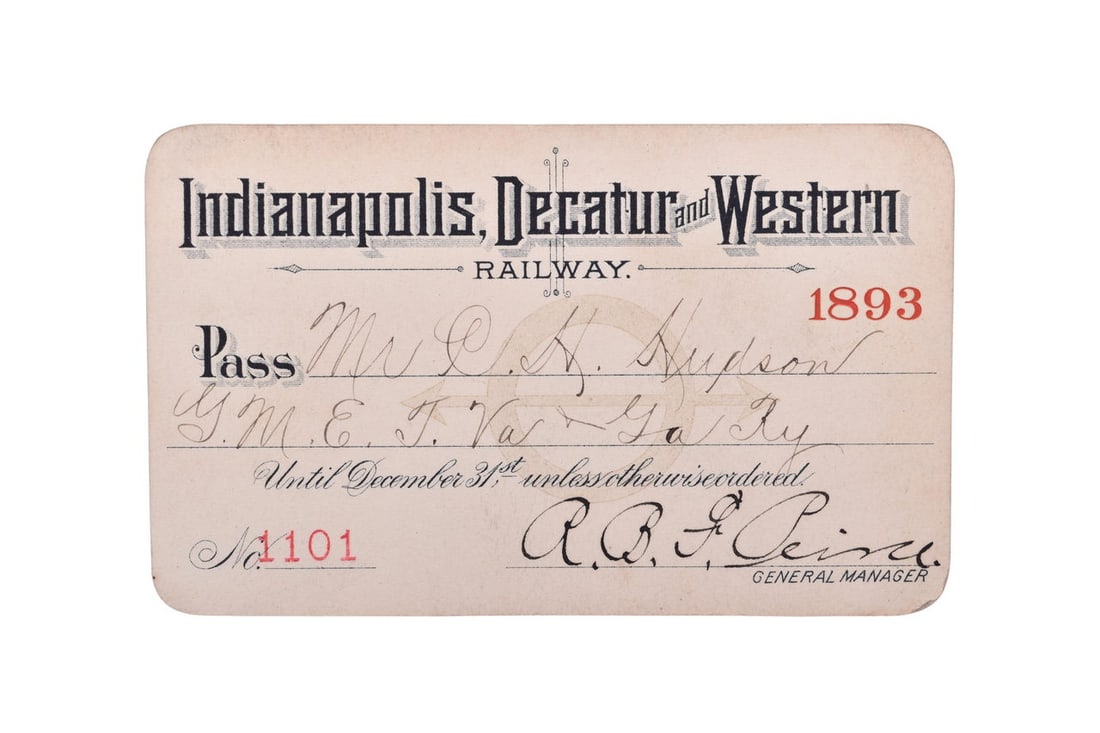 Indianapolis, Decatur and Western
RAILWAY.
1893
Pass Mr C. H. Hudson
G. M. E. T. Va & Ga Ry
Until December 31st, unless otherwise ordered.
No. 1101
R. B. F. Peirce.
GENERAL MANAGER